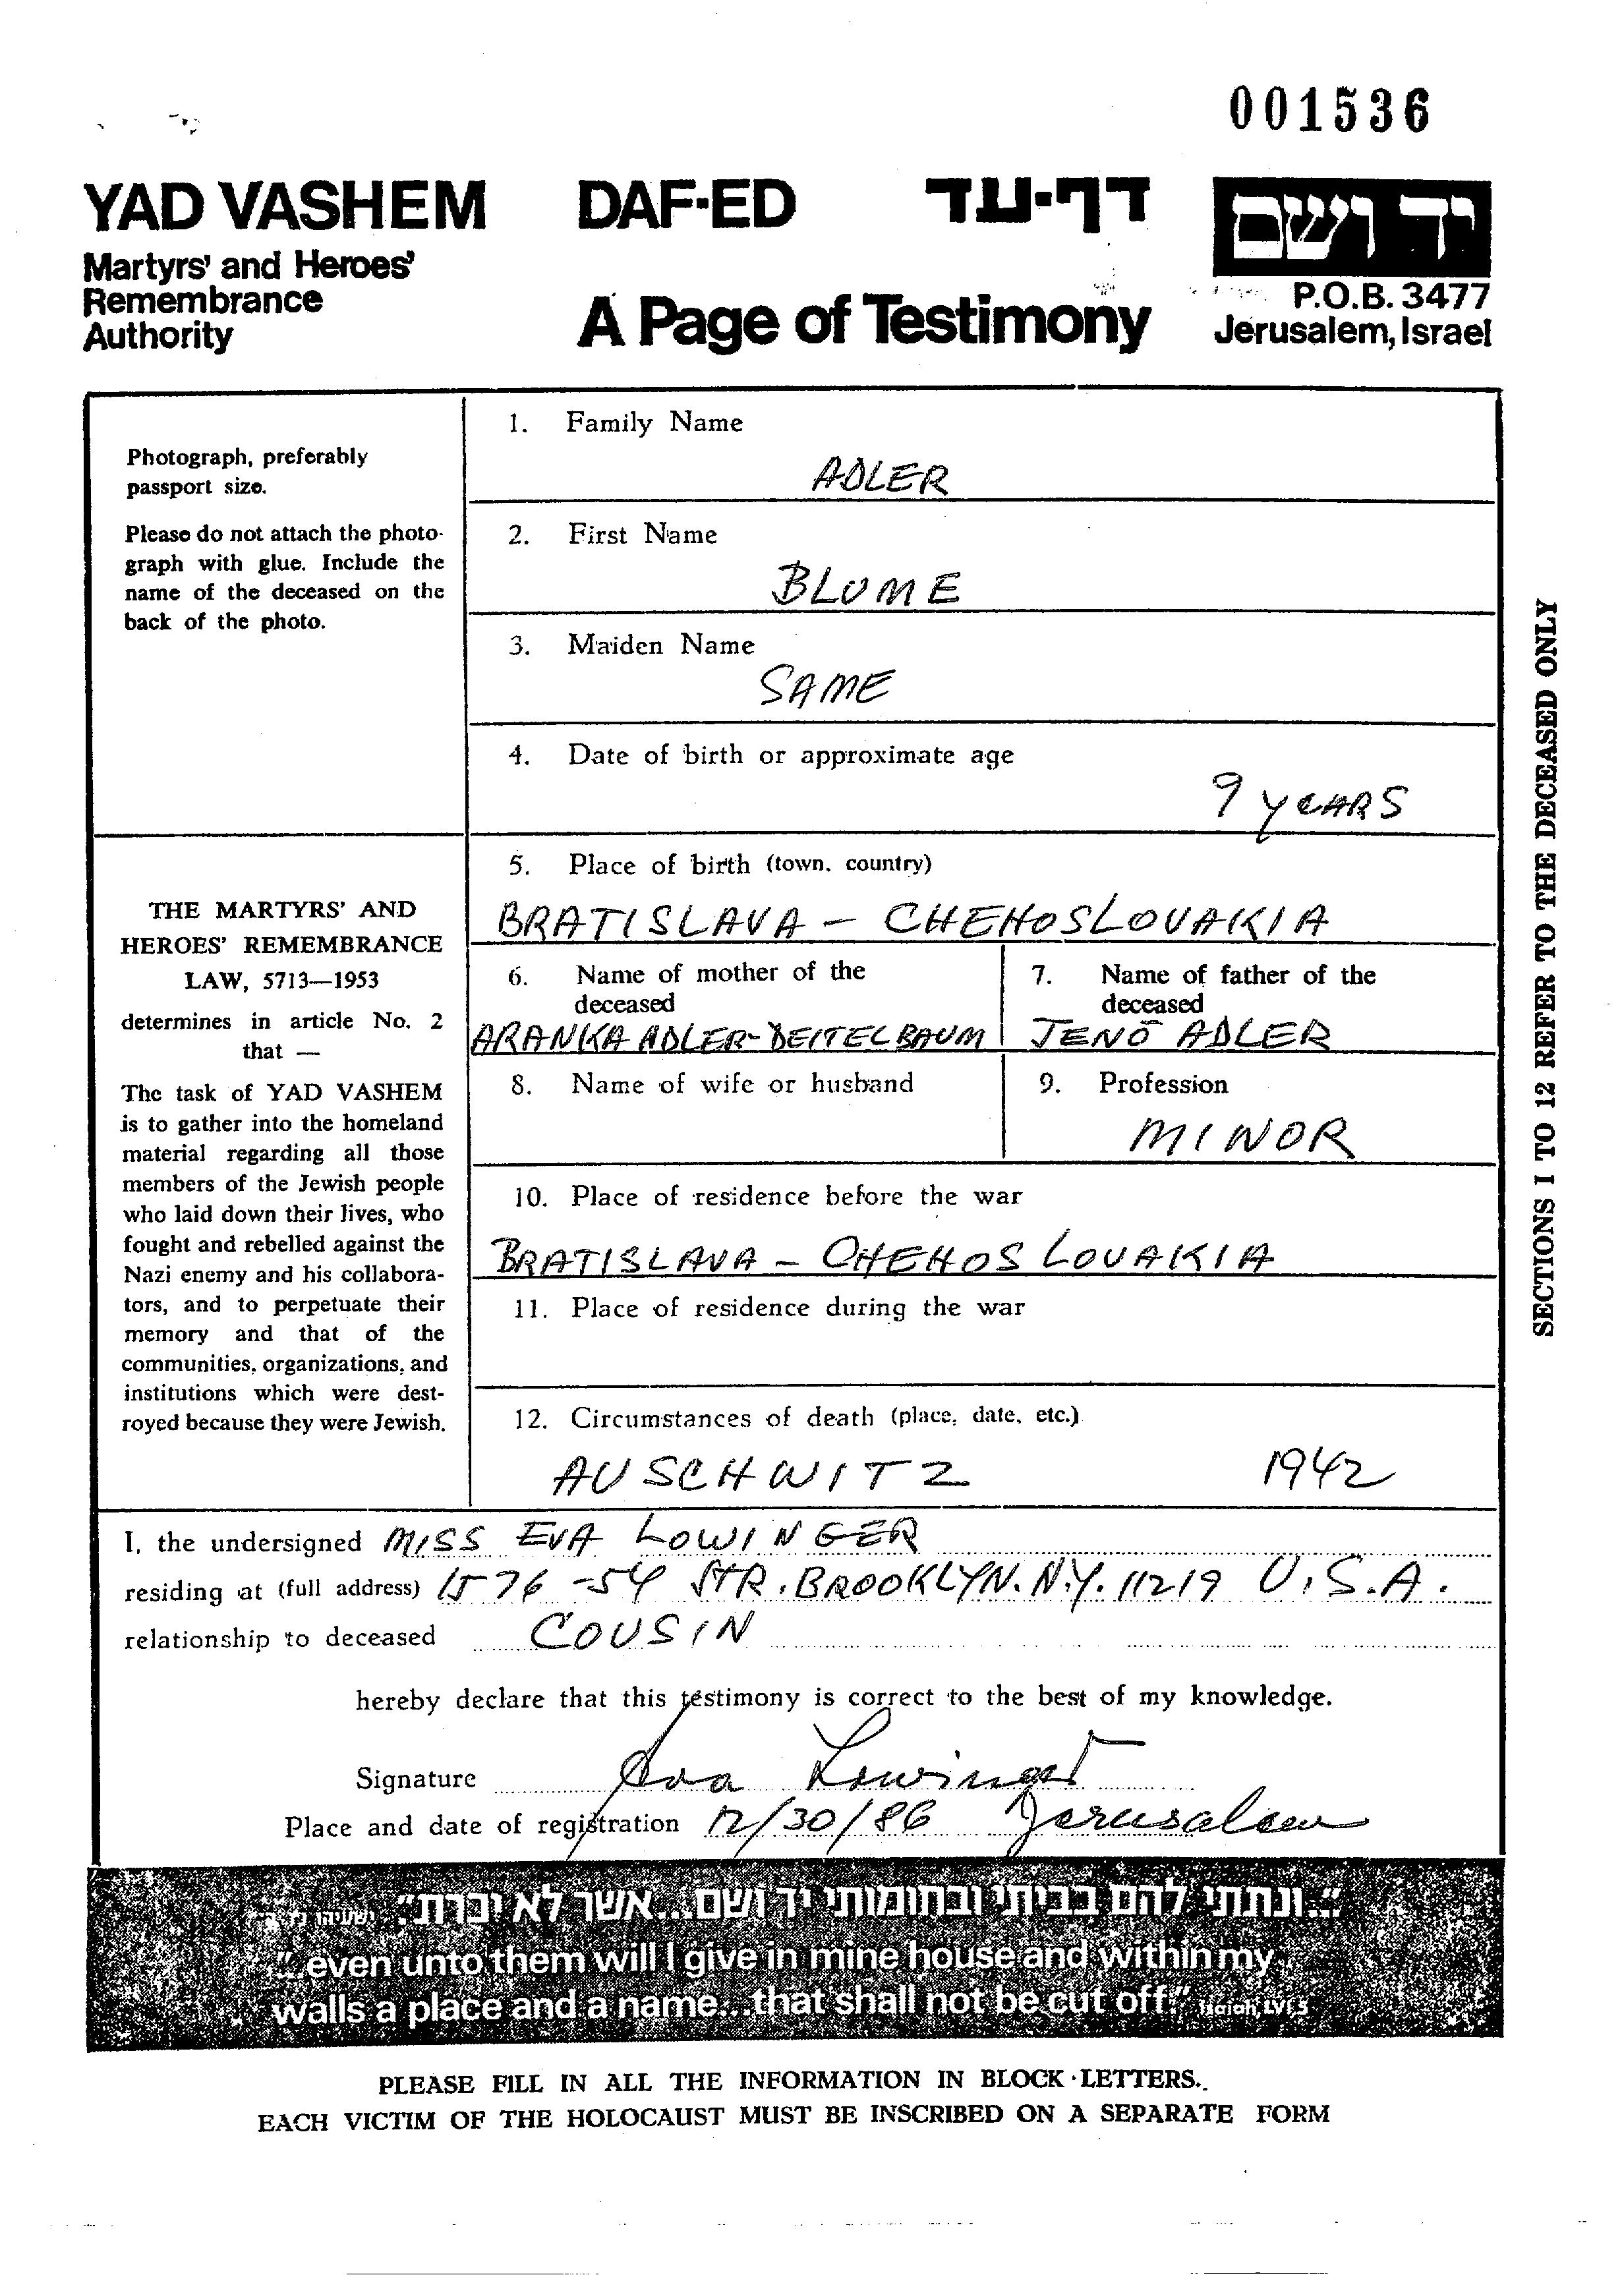 001536
YAD VASHEM DAF-ED דף-עד יד ושם
Martyrs' and Heroes'
Remembrance
Authority
A Page of Testimony
P.O.B. 3477
Jerusalem, Israel
Photograph, preferably
passport size.
Please do not attach the photo-
graph with glue. Include the
name of the deceased on the
back of the photo.
THE MARTYRS' AND
HEROES' REMEMBRANCE
LAW, 5713—1953
determines in article No. 2
that —
The task of YAD VASHEM
is to gather into the homeland
material regarding all those
members of the Jewish people
who laid down their lives, who
fought and rebelled against the
Nazi enemy and his collabora-
tors, and to perpetuate their
memory and that of the
communities, organizations, and
institutions which were dest-
royed because they were Jewish.
1. Family Name
ADLER
2. First Name
BLUME
3. Maiden Name
SAME
4. Date of birth or approximate age
9 YEARS
5. Place of birth (town, country)
BRATISLAVA - CHEHOSLOVAKIA
6. Name of mother of the
deceased
ARANKA ADLER-DEITELBAUM
7. Name of father of the
deceased
JENŌ ADLER
8. Name of wife or husband
9. Profession
MINOR
10. Place of residence before the war
BRATISLAVA - CHEHOSLOVAKIA
11. Place of residence during the war
12. Circumstances of death (place, date, etc.)
AUSCHWITZ 1942
SECTIONS 1 TO 12 REFER TO THE DECEASED ONLY
I, the undersigned MISS EVA LOWINGER
residing at (full address) 1576 -54 STR. BROOKLYN. N.Y. 11219 U.S.A.
relationship to deceased COUSIN
hereby declare that this testimony is correct to the best of my knowledge.
Signature Eva Lowinger
Place and date of registration 12/30/86 Jerusalem
"...ונתתי להם בביתי ובחומותי יד ושם...אשר לא יכרת." ישעיהו
"...even unto them will I give in mine house and within my
walls a place and a name...that shall not be cut off." Isaiah LVI, 5
PLEASE FILL IN ALL THE INFORMATION IN BLOCK LETTERS.
EACH VICTIM OF THE HOLOCAUST MUST BE INSCRIBED ON A SEPARATE FORM